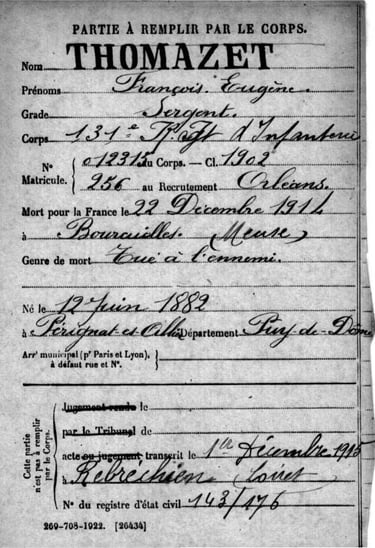 PARTIE À REMPLIR PAR LE CORPS.
Nom THOMAZET
Prénoms François Eugène.
Grade Sergent.
Corps 131e Regt d'Infanterie
N° Matricule. { 012315 au Corps. — Cl. 1902
256 au Recrutement Orléans.
Mort pour la France le 22 Décembre 1914
à Boureuilles. Meuse)
Genre de mort Tué à l'ennemi.
Né le 12 Juin 1882
à Pérignat-et- Département Puy-de-Dôme
Arrt municipal (pr Paris et Lyon), à défaut rue et N°. }
Cette partie n'est pas à remplir par le Corps. { Jugement rendu le
par le Tribunal de
acte ou jugement transcrit le 1er Décembre 1915
à Rebrechien Loiret
N° du registre d'état civil 143/176
269-708-1922. [26434]